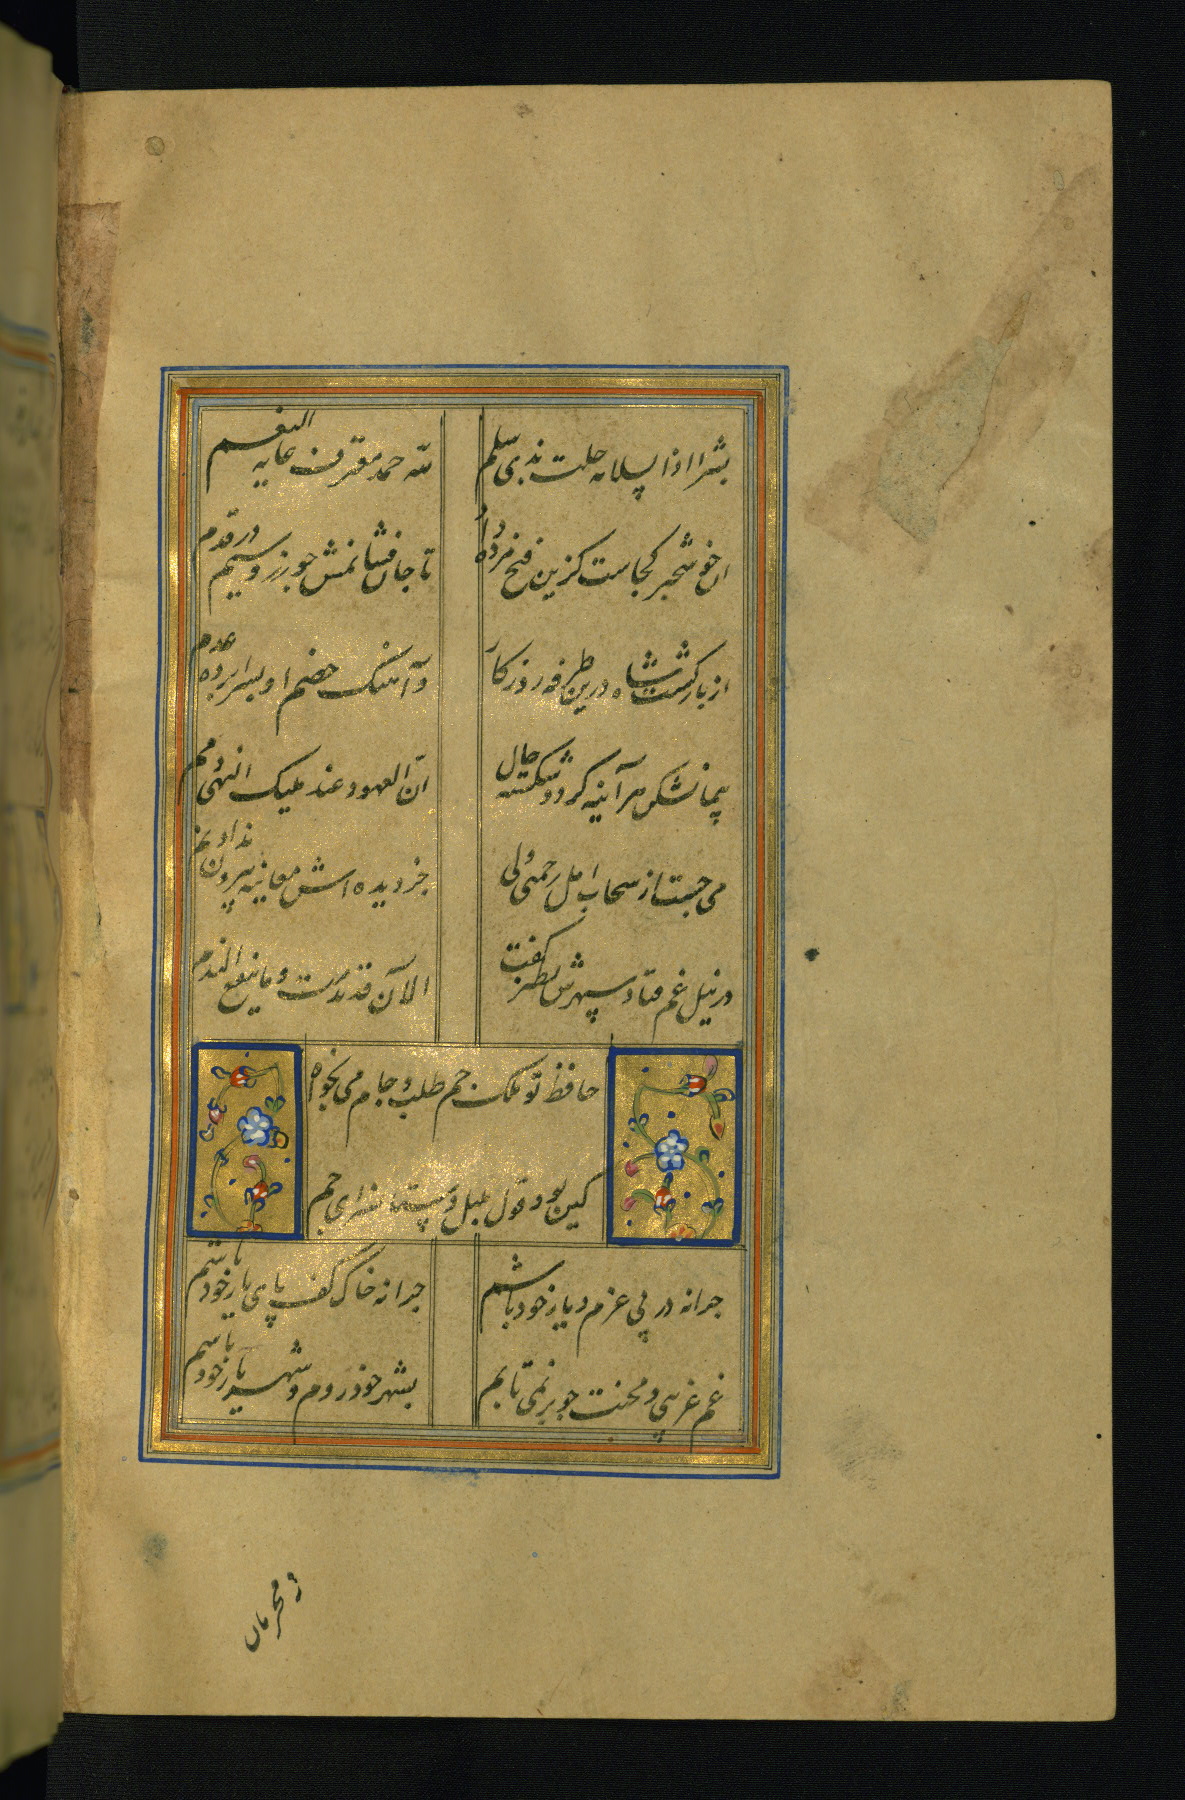 بشرا اذ السلامه حلت بذی سلم
لله حمد معترف غایه النعم
آن خوشخبر کجاست کزین فتح مژده داد
تا جان فشانمش چو زر و سیم در قدم
از بازگشت شاه درین طرفه روزکار
و آهنک خصم او بسرابرده عدم
پیمان شکن هر آینه کردد شکسته حال
ان العهود عند ملیک النهی ذمم
می جست از سحاب امل رحمتی ولی
جز دیده اش معاینه بیرون نداد نم
در نیل غم فتاد سپهرش بطنز کفت
الآن قد ندمت و ما ینفع الندم
حافظ تو ملک جم طلب و جام می بخواه
کین بود قول بلبل و جم
چرا نه در پی عزم دیار خود باشم
چرا نه خاک کف پای یار خود باشم
غم غریبی و محنت چو بر نمی تابم
بشهر خود روم و شهریار خود باشم
ز محرمان